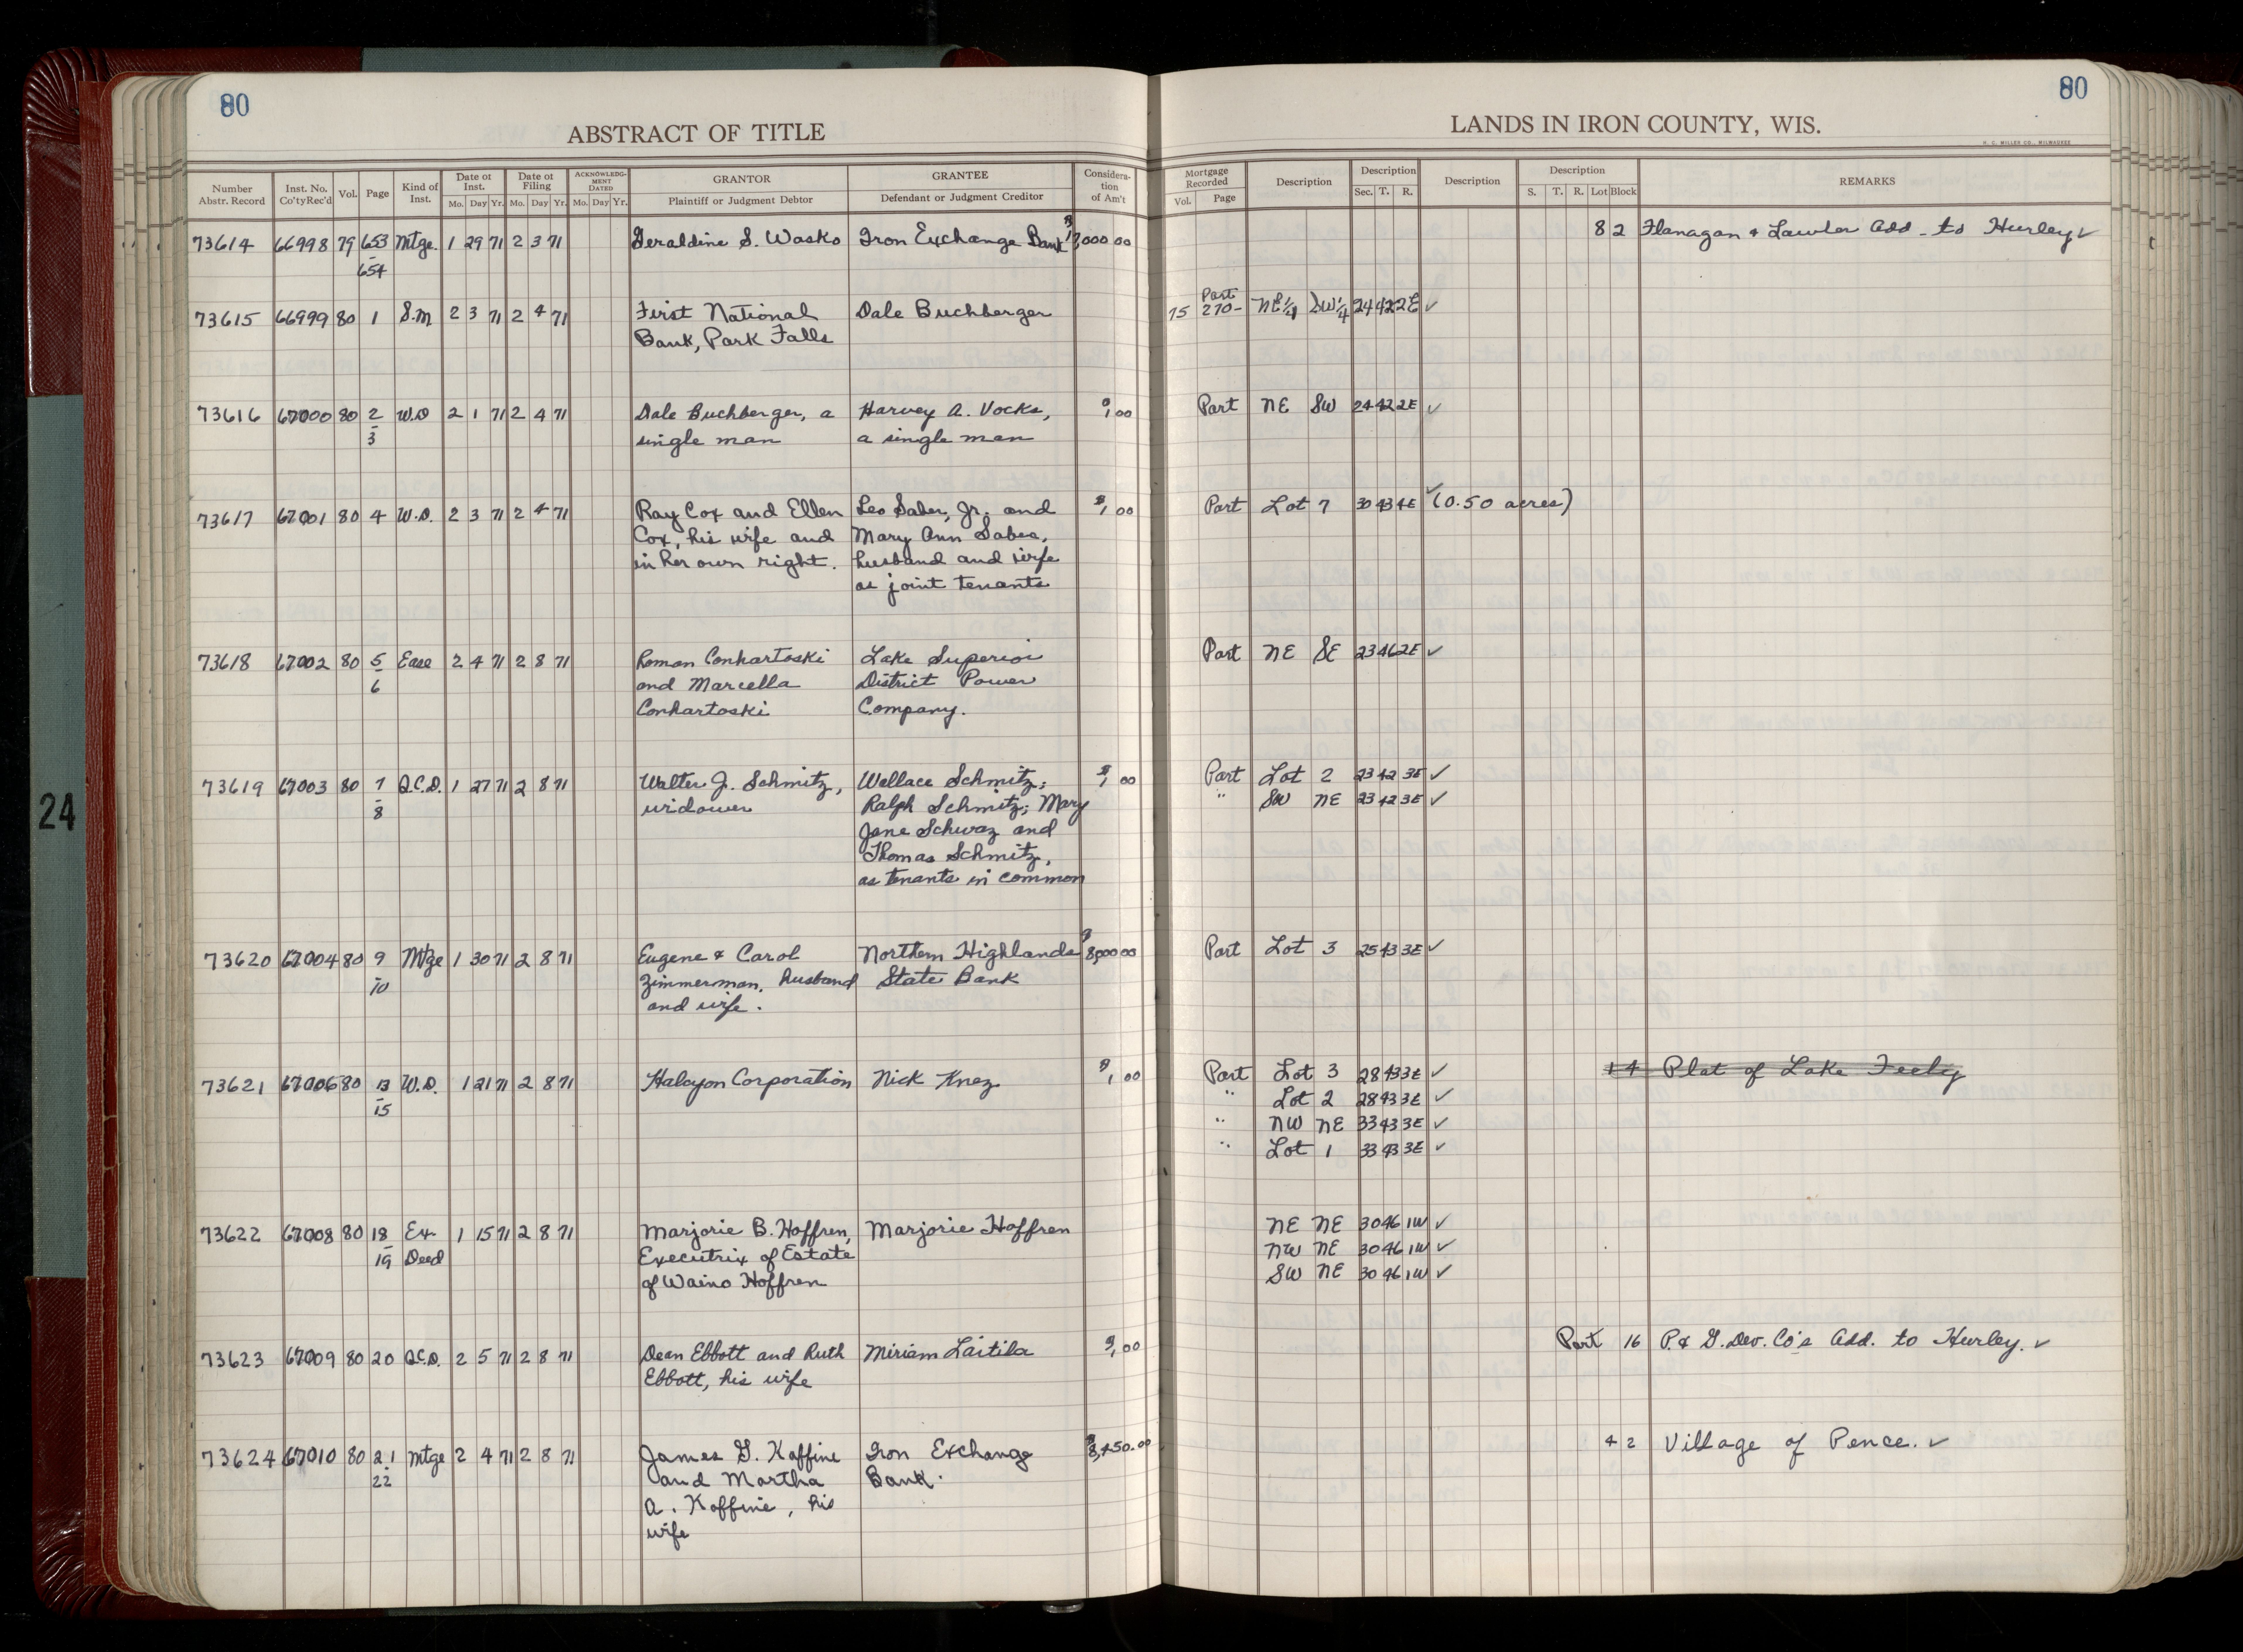 80
ABSTRACT OF TITLE
Number Abstr. Record
Inst. No. Co'ty Rec'd
Vol.
Page
Kind of Inst.
Date of Inst. Mo. Day Yr.
Date of Filing Mo. Day Yr.
ACKNOWLEDG-MENT DATED Mo. Day Yr.
GRANTOR Plaintiff or Judgment Debtor
GRANTEE Defendant or Judgment Creditor
Considera-tion of Am't
80
LANDS IN IRON COUNTY, WIS.
H. C. MILLER CO., MILWAUKEE
Mortgage Recorded Vol. Page
Description
Description Sec. T. R.
Description
Description S. T. R. Lot Block
REMARKS
73614 66998 79 653 Mtge. 1 29 71 2 3 71 Geraldine S. Wasko Iron Exchange Bank 8 2 Flanagan & Lawler Add - to Hurley ✓
654
73615 66999 80 1 S.M 2 3 71 2 4 71 First National Dale Buchberger 75 Part 270- NE¼ SW¼ 24 42 2E ✓
Bank, Park Falls
73616 67000 80 2 W.D 2 1 71 2 4 71 Dale Buchberger, a Harvey A. Vocks, $1,00 Part NE SW 24 42 2E ✓
3 single man a single man
73617 67001 80 4 W.D. 2 3 71 2 4 71 Ray Cox and Ellen Leo Saber, Jr. and $1,00 Part Lot 7 30 43 4E ✓ (0.50 acres)
Cox, his wife and Mary Ann Sabea,
in her own right. husband and wife
as joint tenants
73618 67002 80 5 Ease 2 4 71 2 8 71 Roman Conhartoski Lake Superior Part NE SE 23 46 2E ✓
6 and Marcella District Power
Conhartoski Company.
73619 67003 80 7 Q.C.D. 1 27 71 2 8 71 Walter J. Schmitz, Wallace Schmitz; $1,00 Part Lot 2 23 42 3E ✓
8 widower Ralph Schmitz; Mary " SW NE 23 42 3E ✓
Jane Schwaz and
Thomas Schmitz,
as tenants in common
73620 67004 80 9 Mtge 1 30 71 2 8 71 Eugene & Carol Northern Highlands $8,000 00 Part Lot 3 25 43 3E ✓
10 Zimmerman, husband State Bank
and wife.
73621 67006 80 13 W.D. 1 21 71 2 8 71 Halcyon Corporation Nick Knez $1,00 Part Lot 3 28 43 3E ✓ 14 Plat of Lake Feely
15 " Lot 2 28 43 3E ✓
" NW NE 33 43 3E ✓
" Lot 1 33 43 3E ✓
73622 67008 80 18 Ex- 1 15 71 2 8 71 Marjorie B. Hoffren, Marjorie Hoffren NE NE 30 46 1W ✓
19 Deed Executrix of Estate NW NE 30 46 1W ✓
of Waino Hoffren SW NE 30 46 1W ✓
73623 67009 80 20 Q.C.D. 2 5 71 2 8 71 Dean Ebbott and Ruth Miriam Laitila $1,00 Part 16 P. & G. Dev. Co's Add. to Hurley. ✓
Ebbott, his wife
73624 67010 80 21 Mtge 2 4 71 2 8 71 James G. Kaffine Iron Exchange 4 2 Village of Pence. ✓
22 and Martha Bank.
A. Kaffine, his
wife
24